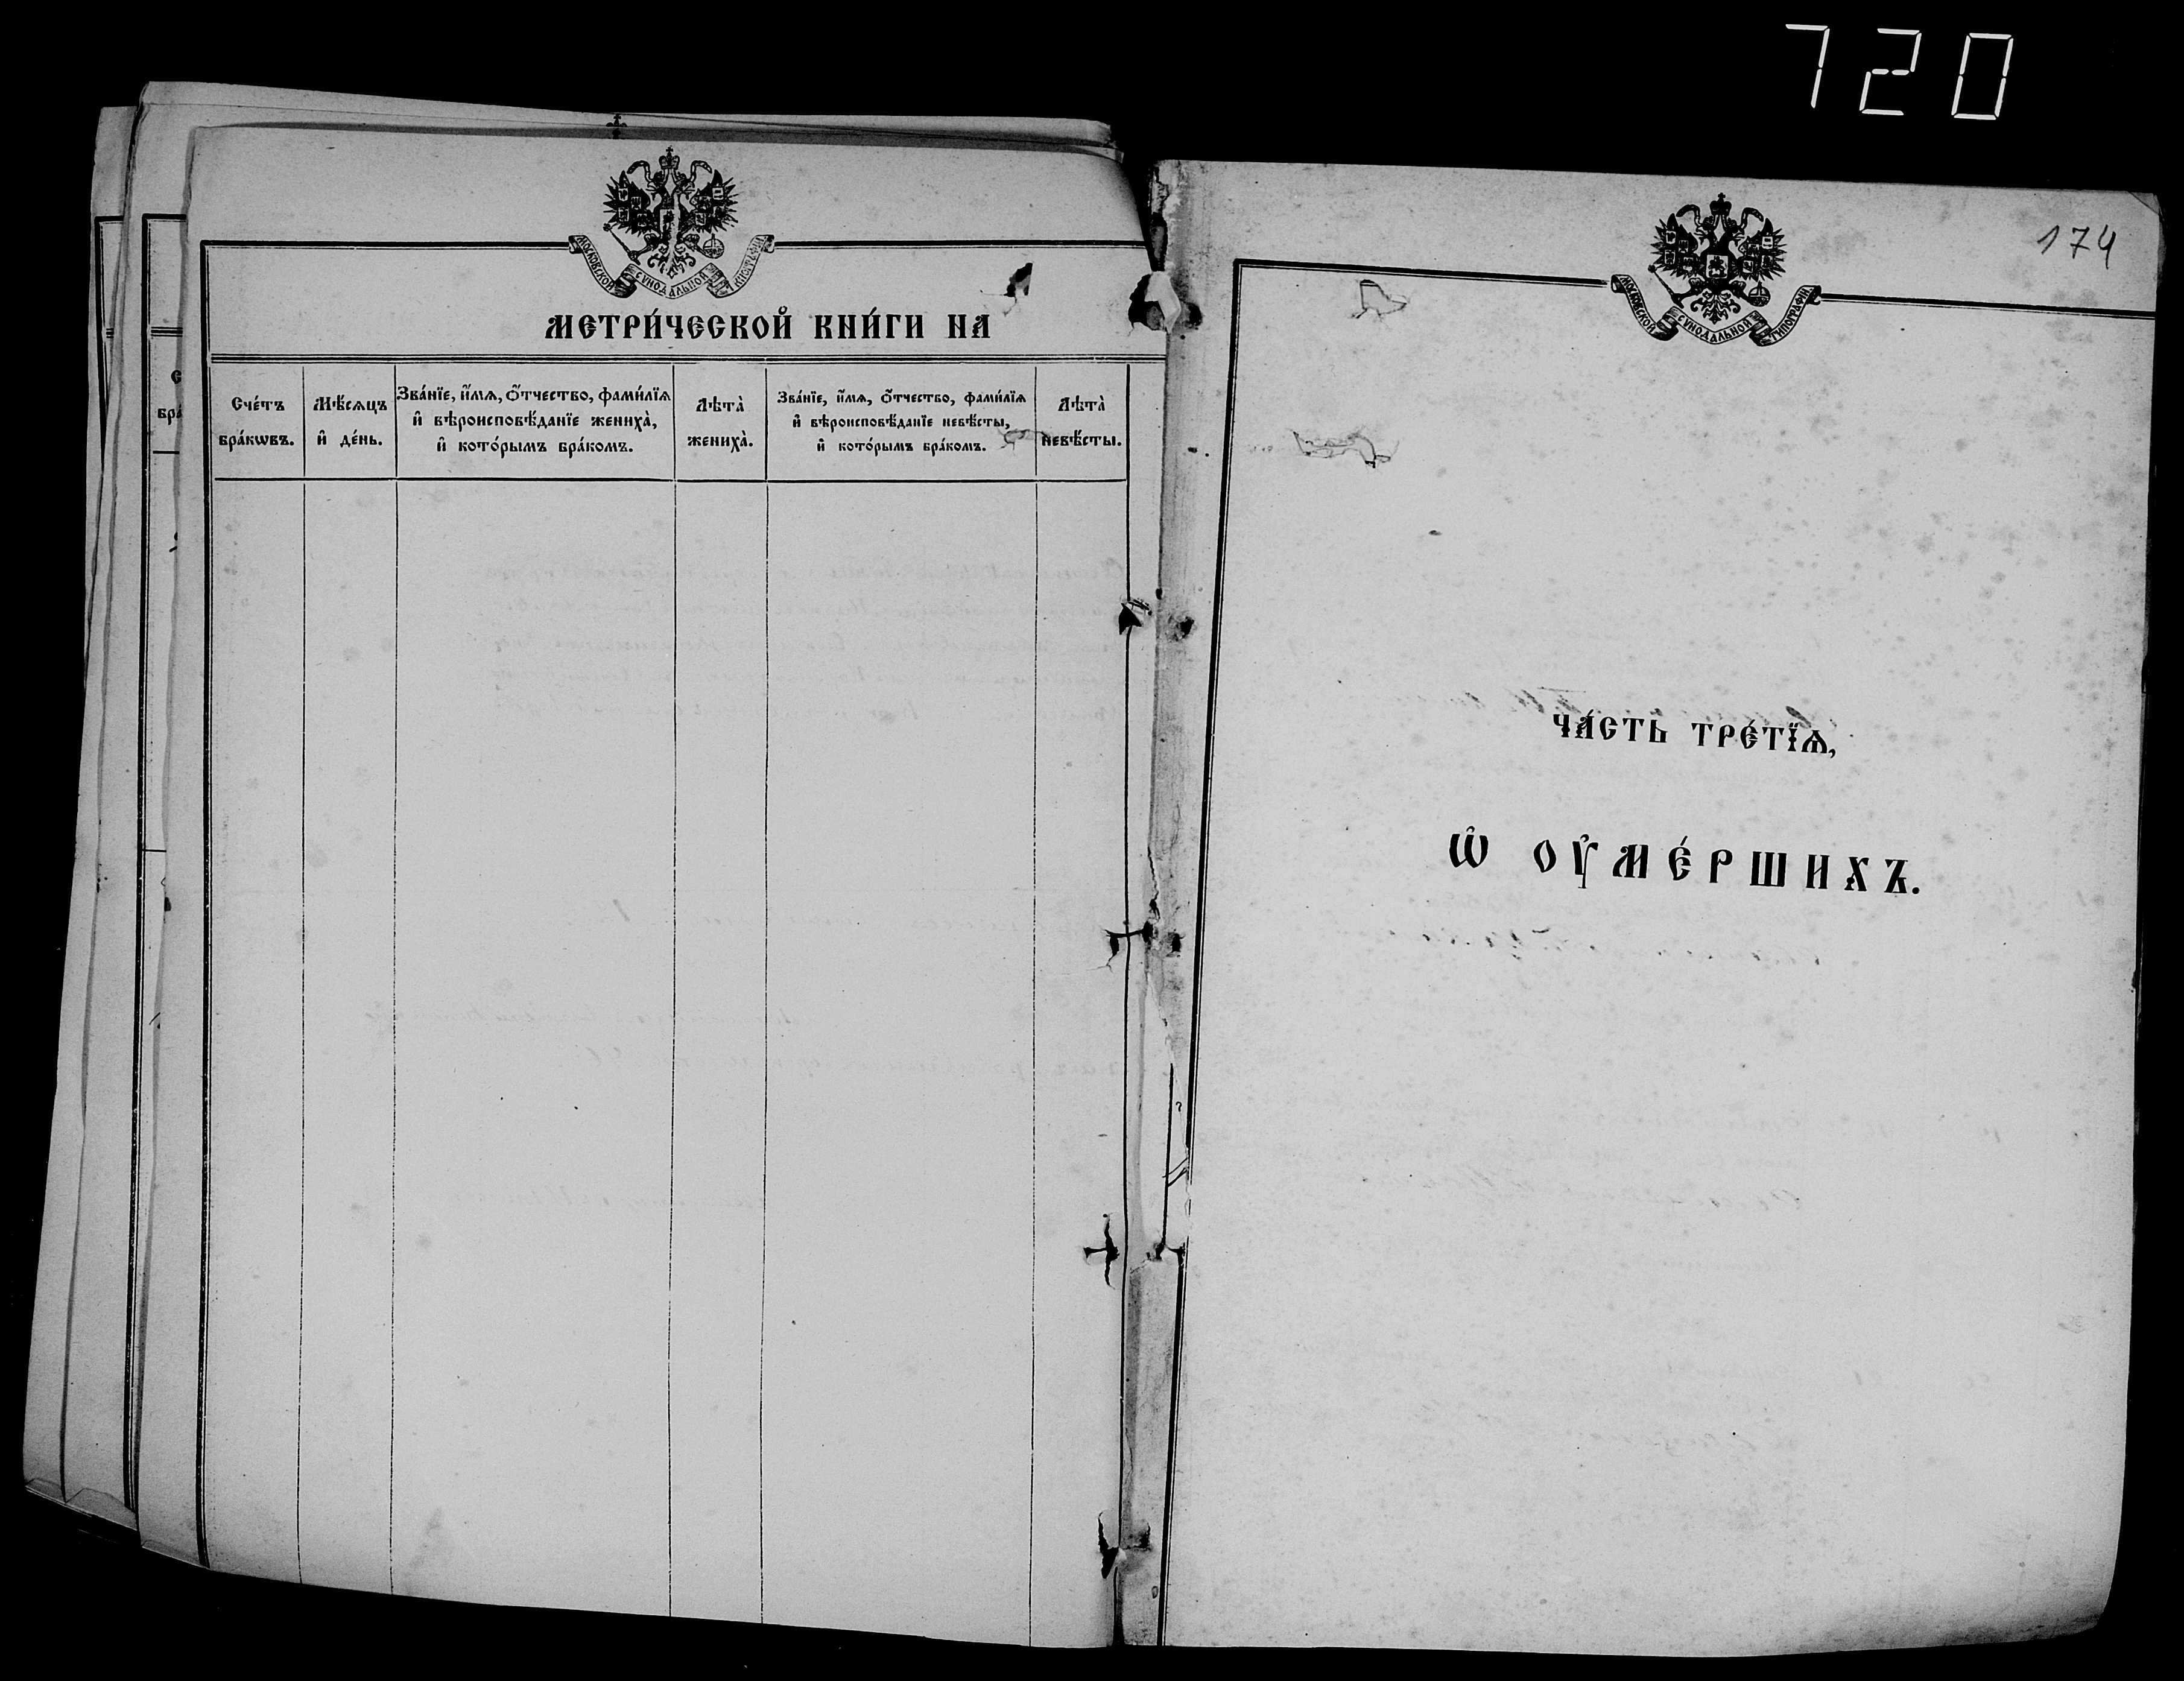 720
МОСКОВСКОЙ СѴНОДАЛЬНОЙ ТИПОГРАФІИ
МЕТРИ́ЧЕСКОЙ КНИ́ГИ НА
Сче́тъ бра́кѡвъ.
Мѣ́сѧцъ и҆ де́нь.
Зва́нїе, и҆́мѧ, ѻ҆́тчество, фами́лїѧ
и҆ вѣроисповѣ́данїе жениха̀,
и҆ кото́рымъ бра́комъ.
Лѣта̀ жениха̀.
Зва́нїе, и҆́мѧ, ѻ҆́тчество, фами́лїѧ
и҆ вѣроисповѣ́данїе невѣ́сты,
и҆ кото́рымъ бра́комъ.
Лѣта̀ невѣ́сты.
174
МОСКОВСКОЙ СѴНОДАЛЬНОЙ ТИПОГРАФІИ
ЧА́СТЬ ТРЕ́ТЇѦ,
Ѡ҆ ОУ҆МЕ́РШИХЪ.